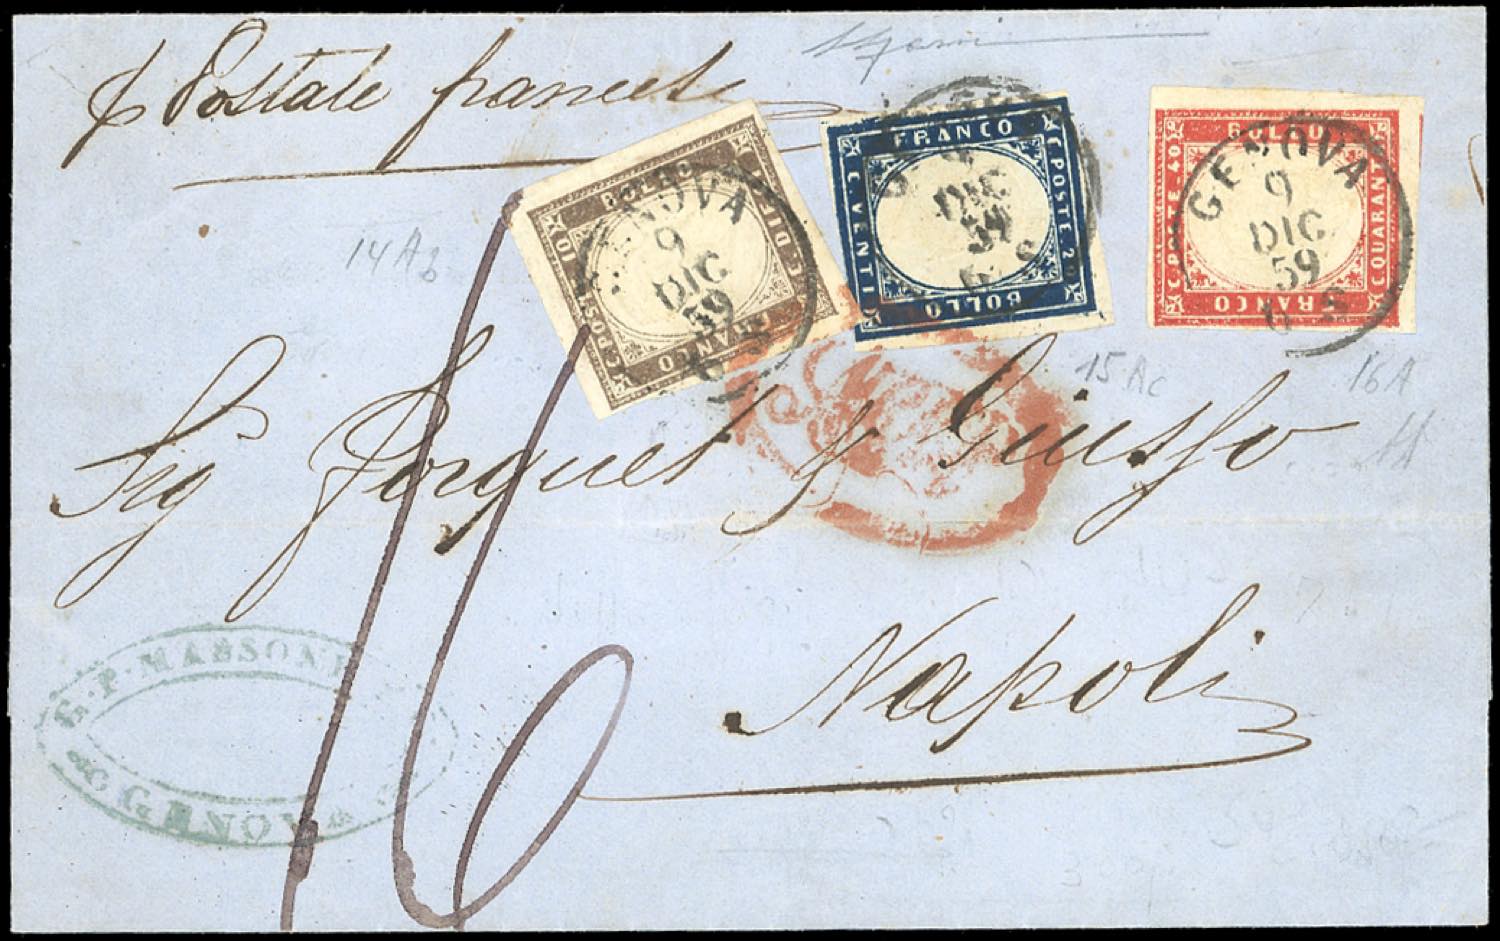 p Postale francese
BOLLO
C. DIECI
FRANCO
C. POSTE 10
GENOVA
9
DIC
59
FRANCO
C. POSTE 20
BOLLO
C. VENTI
DIC
59
BOLLO
C. QUARANTA
FRANCO
C. POSTE 40
GENOVA
9
DIC
59
14Ab
15Ac
16A
Sig Forquet y Giusso
Napoli
16
G. P. MASSONE
GENOVA